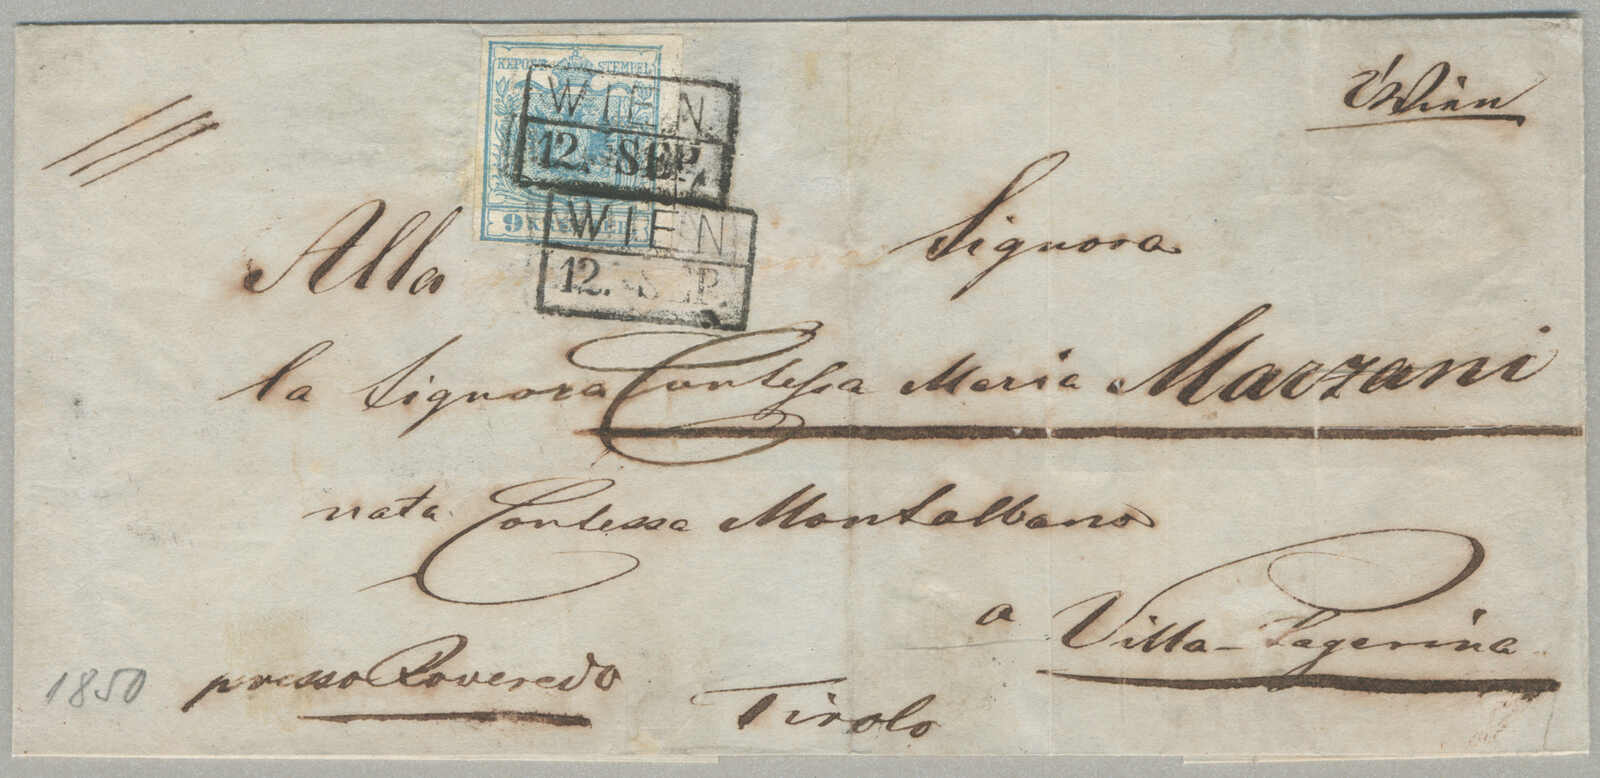 KKPOST STEMPEL
9 KREUZER
WIEN
12. SEP.
WIEN
12. SEP.
Wien
Alla Signora
la Signora Contessa Maria Marzani
nata Contessa Montalbano
a Villa-Lagerina
presso Roveredo
Tirolo
1850